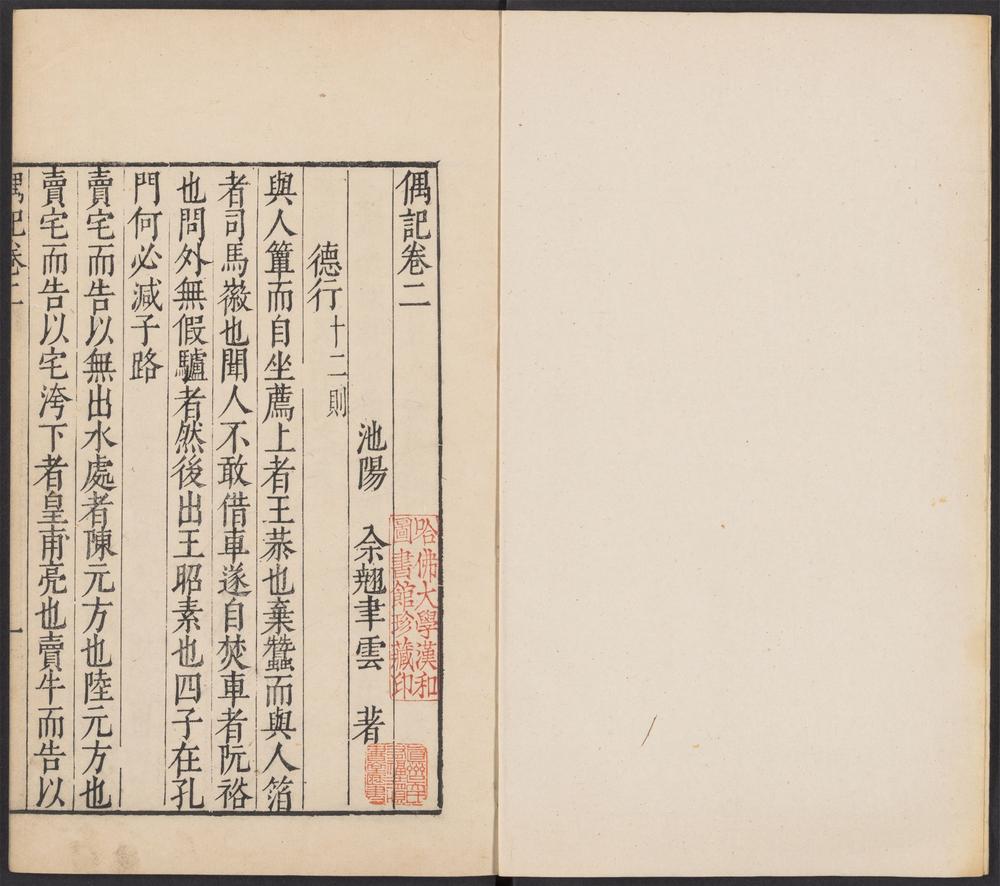 偶記卷二
池陽 余翹聿雲 著
德行十二則
與人簞而自坐薦上者王恭也棄蠶而與人箔
者司馬徽也聞人不敢借車遂自焚車者阮裕
也問外無假驢者然後出王昭素也四子在孔
門何必減子路
賣宅而告以無出水處者陳元方也陸元方也
賣宅而告以宅洿下者皇甫亮也賣牛而告以
偶記卷二 一
哈佛大學漢和
圖書館珍藏印